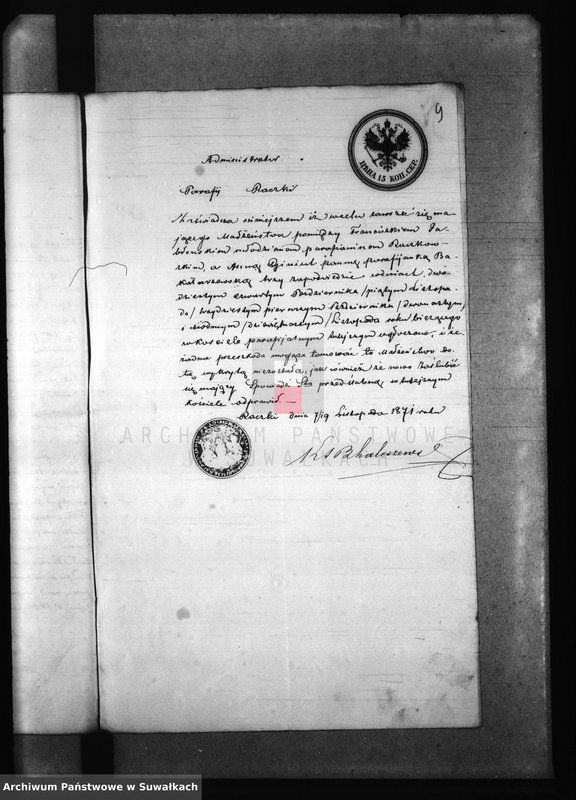 9
ЦѢНА 15 КОП. СЕР.
Administrator
Parafij Raczki
Zaświadcza niniejszem iż wcelu zawrzeć się ma
jącego Małżeństwa pomiędzy Franciszkiem Ja
błońskim młodzianem parafianinem Raczkow
skim, a Anną panną parafijanką Ba
kałarzewską trzy zapowiedzie wdniach, dwu
dziestym czwartym Października /piątym Listopa
da/ trzydziestym pierwszym Października /dwunastym/
i siódmym /dziewiętnastym/ Listopada roku bieżącego
wkościele parafijalnym tutejszym ogłoszono, i że
żadna przeszkoda mogąca tamować to Małżeństwo do
tąd wykrytą niezostała, jak również że nowo Zaślubić
się mający Spowiedź Stą przedślubną wtutejszym
kościele odprawił.—
Raczki dnia 7/19 Listopada 1871 roku
ARCHIWUM PAŃSTWOWE
W SUWAŁKACH
Archiwum Państwowe w Suwałkach